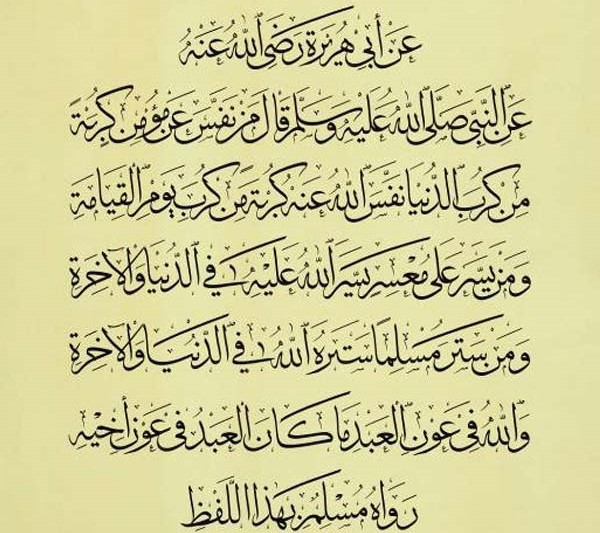 عَنْ أَبِي هُرَيْرَةَ رَضِيَ اللهُ عَنْهُ
عَنِ النَّبِيِّ صَلَّى اللهُ عَلَيْهِ وَسَلَّمَ قَالَ مَنْ نَفَّسَ عَنْ مُؤْمِنٍ كُرْبَةً
مِنْ كُرَبِ الدُّنْيَا نَفَّسَ اللهُ عَنْهُ كُرْبَةً مِنْ كُرَبِ يَوْمِ الْقِيَامَةِ
وَمَنْ يَسَّرَ عَلَى مُعْسِرٍ يَسَّرَ اللهُ عَلَيْهِ فِي الدُّنْيَا وَالْآخِرَةِ
وَمَنْ سَتَرَ مُسْلِمًا سَتَرَهُ اللهُ فِي الدُّنْيَا وَالْآخِرَةِ
وَاللهُ فِي عَوْنِ الْعَبْدِ مَا كَانَ الْعَبْدُ فِي عَوْنِ أَخِيْهِ
رَوَاهُ مُسْلِمٌ بِهَذَا اللَّفْظِ